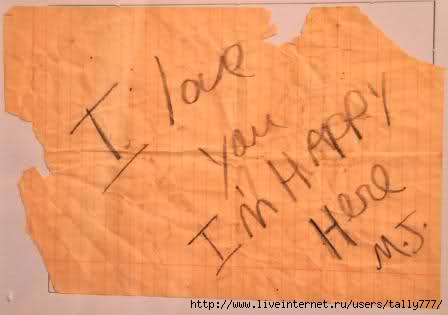 I love
You
I'm HAPPY
Here
M.J.
http://www.liveinternet.ru/users/tally777/